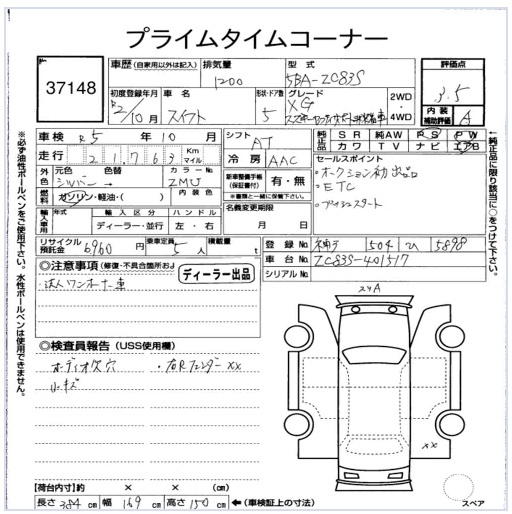 プライムタイムコーナー
37148
車歴 (自家用以外は記入)
排気量
1200
型式
5BA-ZC83S
評価点
3.5
初度登録年月
R2/10月
車名
スイフト
形状・ドア数
5
グレード
XG
2WD
4WD
内装
補助評価
A
車検 R5年10月
走行 21,763 Km
マイル
シフト
AT
冷房
AAC
純正品
SR 純AW PS PW
カワ TV ナビ エアB
外色
元色
シルバー
色替
カラーNo.
ZMU
燃料
ガソリン・軽油・( )
内装色
新車整備手帳
(保証書付)
有・無
※書類と一緒に保管下さい。
セールスポイント
・オークション初出品
・ETC
・プッシュスタート
輸入車用
年式
輸入区分
ディーラー・並行
ハンドル
左・右
名義変更期限
月 日
リサイクル
預託金
6960円
乗車定員
5人
積載量
t
登録No. 神戸 504 5898
車台No. ZC83S-401517
シリアルNo.
◎注意事項 (修復・不具合箇所およ
ディーラー出品
・法人ワンオーナー車
◎検査員報告 (USS使用欄)
ボディ
・右Rフェンダー XX
XX
スペア
【荷台内寸】約 × × (cm)
長さ 384 cm 幅 169 cm 高さ 150 cm ←(車検証上の寸法)
※必ず油性ボールペンをご使用下さい。水性ボールペンは使用できません。
←純正品に限り該当に○をつけて下さい。